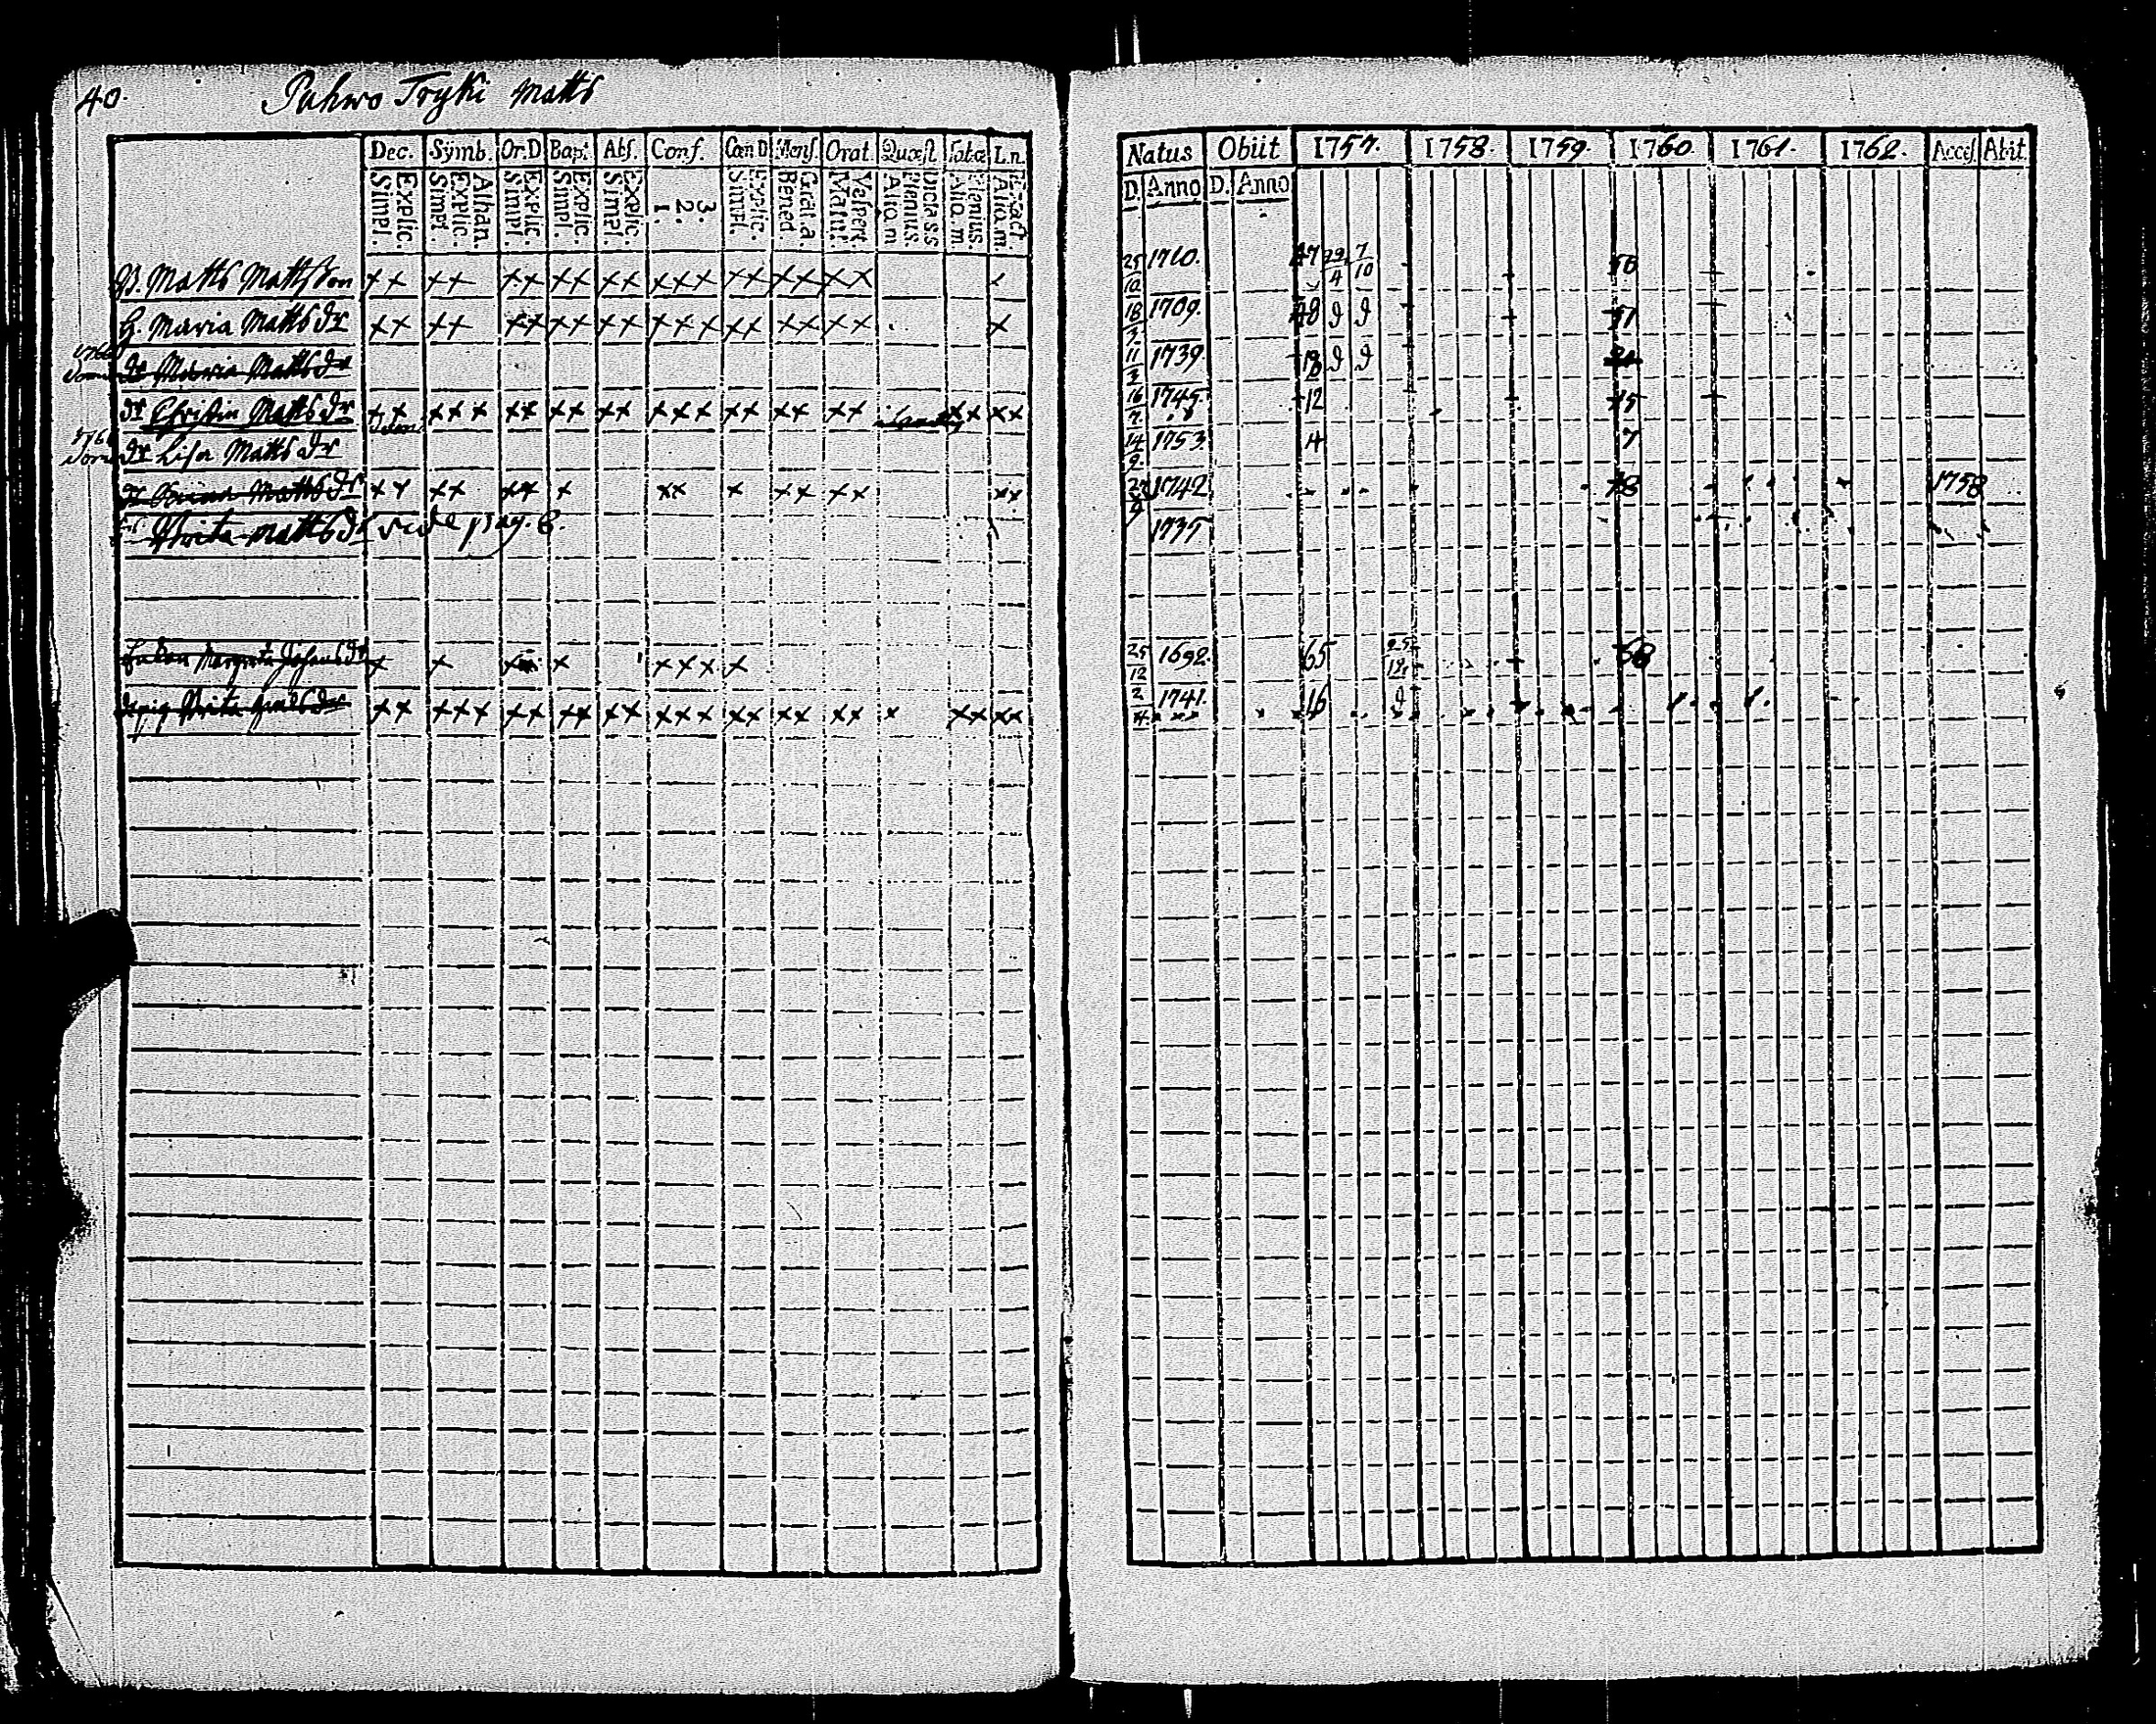 40. Pahwo Tryki Matts
Dec. Symb. Or.D Bapt Abs. Conf. Cœn D Mens. Orat. Quæst. Tabæ L.n.
Simpl. Explic. Simpl Explic. Athan. Simpl. Explic. Simpl. Explic. Simpl. Explic. 1. 2. 3. Simpl. Explic. Bened. Grat. a. Matut. Vespert. Aliq. m Plenius Dicta s s Aliq. m. Plenius. Aliq. m. Exact
B. Matts Mattsson x x x x x x x x x x x x x x x x x x x x
H. Maria Matts dr x x x x x x x x x x x x x x x x x x x x
dr Maria Matts dr
dr Christin Matts dr x x x x x x x x x x x x x x x x x x x x x x x x
dr Lisa Matts dr
Matts dr x x x x x x x x x x x x x x x x
Brita Matts dr vide pag. 8.
Enkan Margreta Johans dr x x x x x x x x
Brita dr x x x x x x x x x x x x x x x x x x x x x x x x x
Natus Obiit 1757. 1758. 1759. 1760 1761. 1762. Acces. Abit
D. Anno D. Anno
25/10 1710. 47 29/4 7/10 50
18/3 1709. 48 51
11/3 1739. 18 21
16/7 1745. 12 15
14/9 1753. 4 7
1742 18 1758
1735
25/12 1692. 65 68
2/4 1741. 16